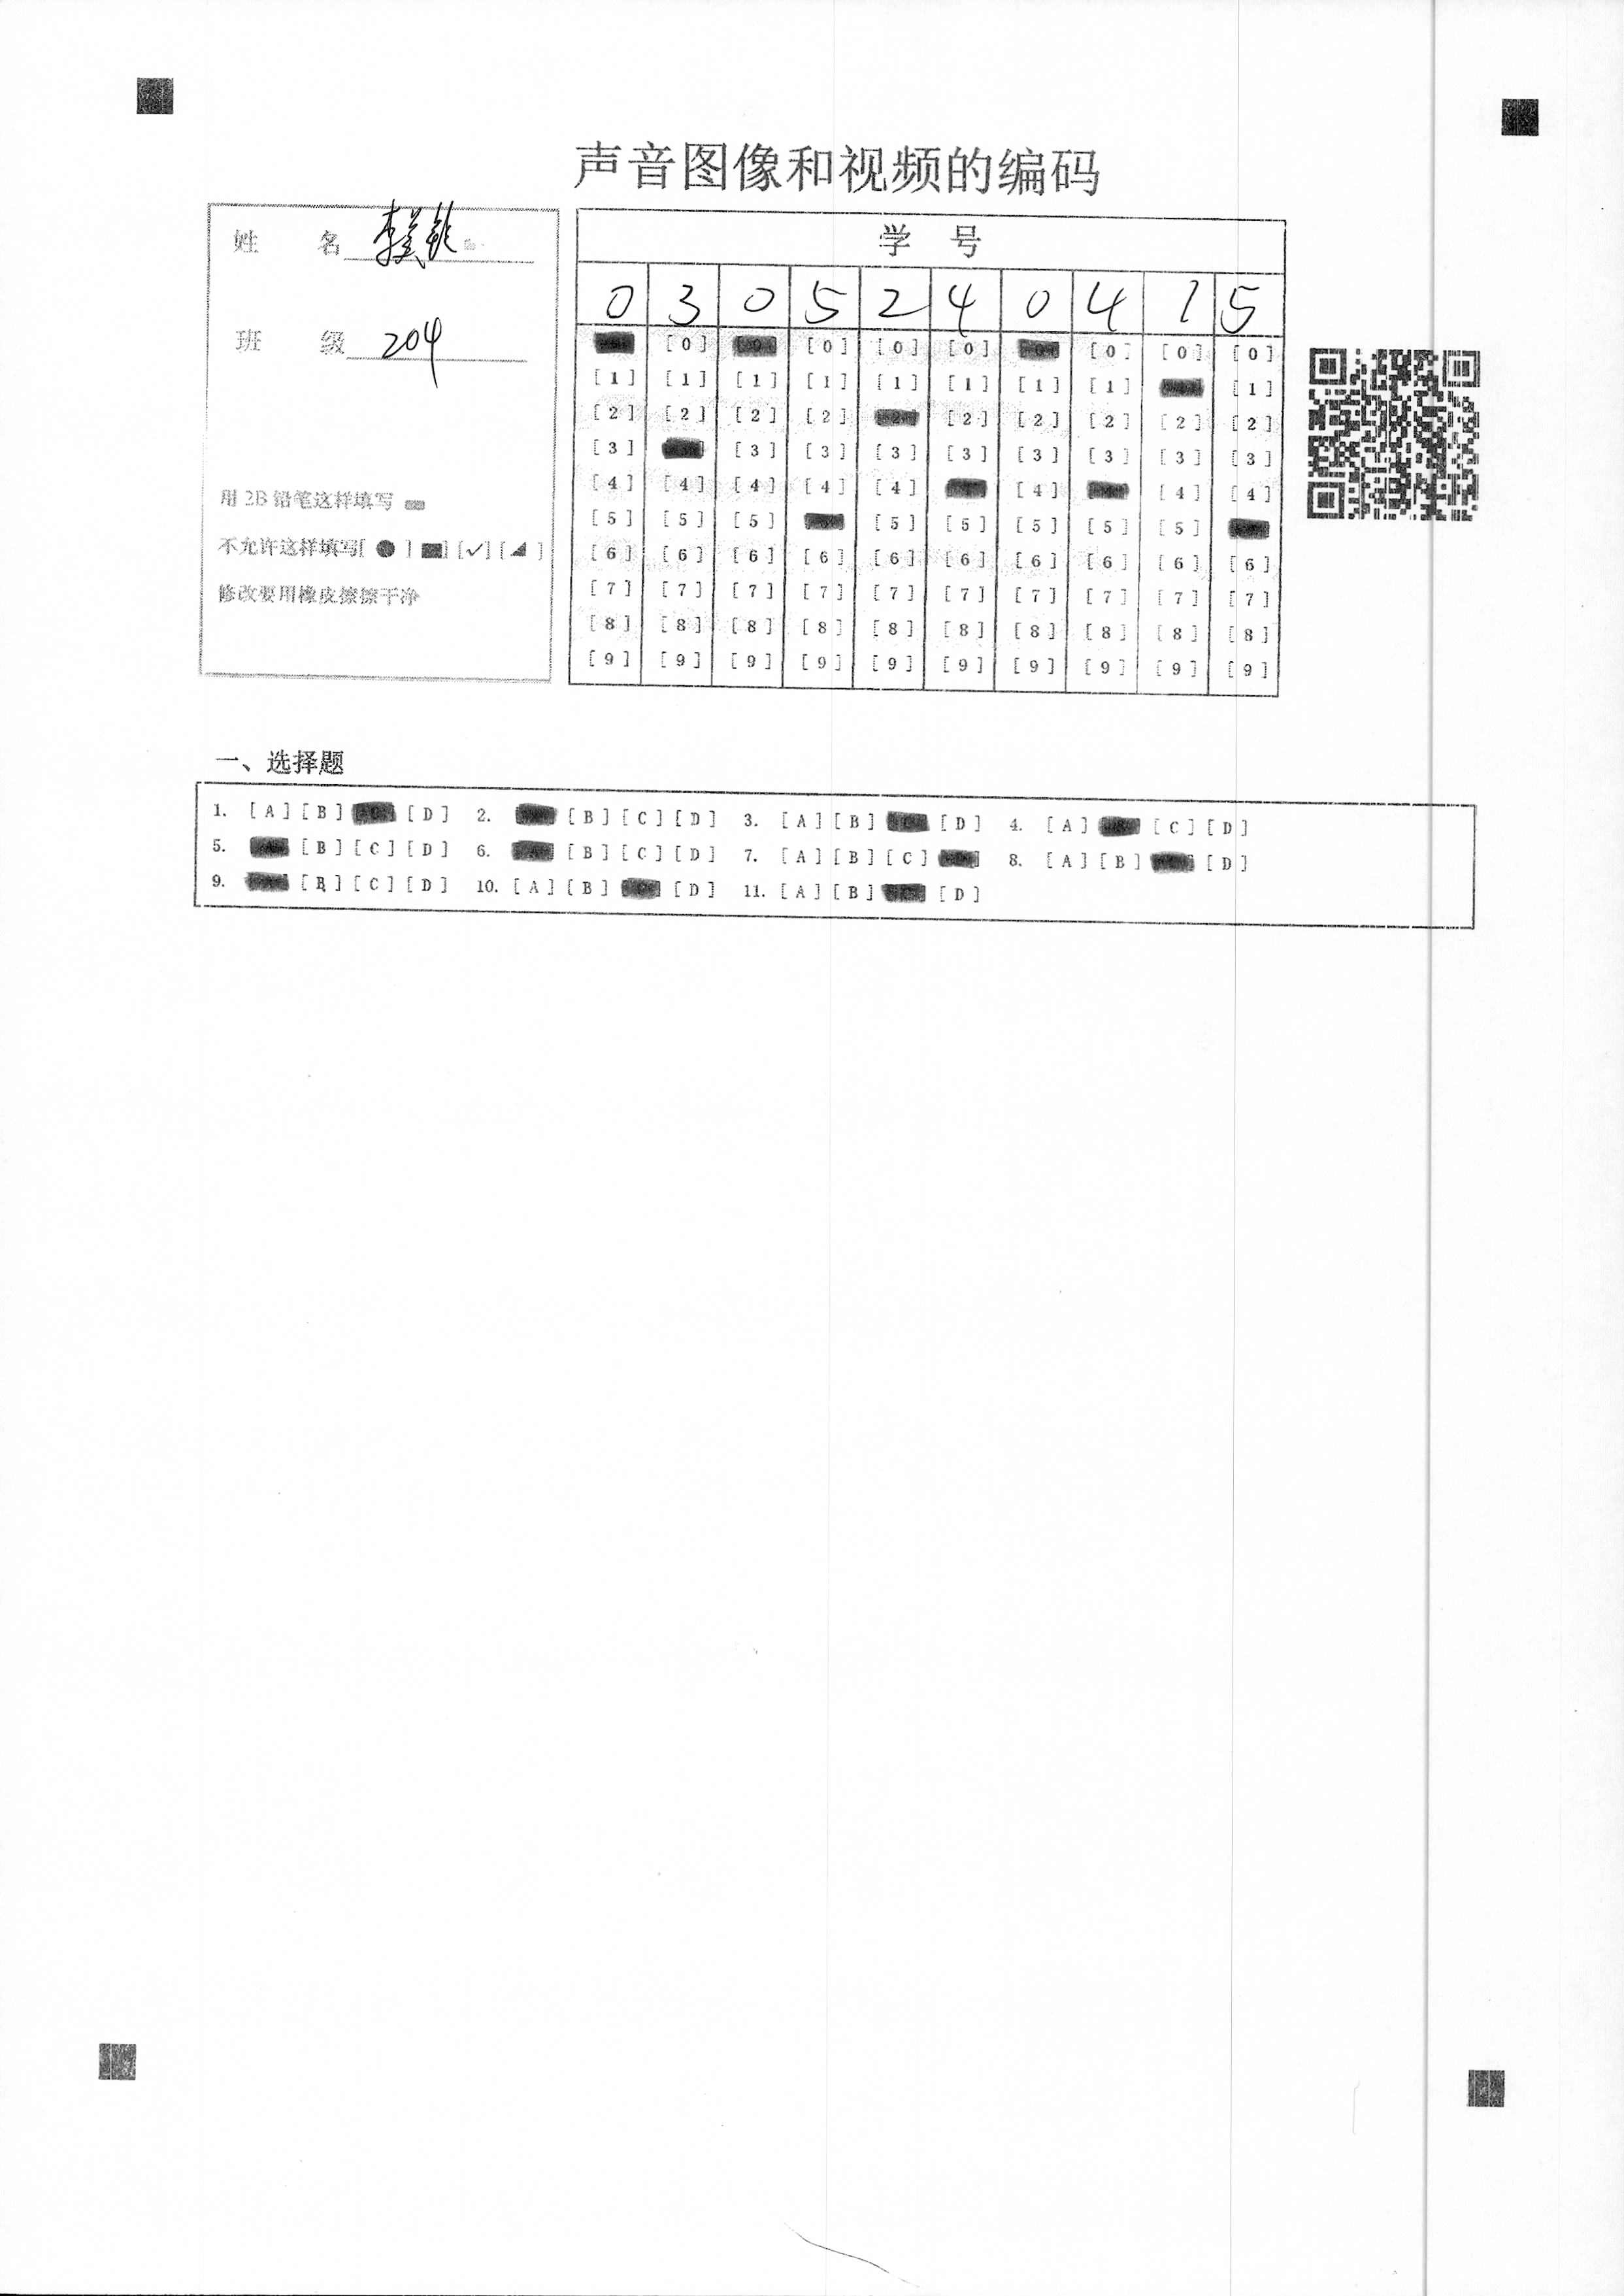 声音图像和视频的编码
姓 名
班 级 204
用 2B 铅笔这样填写
不允许这样填写[ ● ] ■] [✓] [◢ ]
修改要用橡皮擦擦干净
学 号
0 3 0 5 2 4 0 4 1 5
[0] [0] [0] [0] [0] [0] [0]
[1] [1] [1] [1] [1] [1] [1] [1] [1]
[2] [2] [2] [2] [2] [2] [2] [2] [2] [2]
[3] [3] [3] [3] [3] [3] [3] [3] [3]
[4] [4] [4] [4] [4] [4] [4] [4]
[5] [5] [5] [5] [5] [5] [5] [5]
[6] [6] [6] [6] [6] [6] [6] [6] [6] [6]
[7] [7] [7] [7] [7] [7] [7] [7] [7] [7]
[8] [8] [8] [8] [8] [8] [8] [8] [8] [8]
[9] [9] [9] [9] [9] [9] [9] [9] [9] [9]
一、选择题
1. [A] [B] [D] 2. [B] [C] [D] 3. [A] [B] [D] 4. [A] [C] [D]
5. [B] [C] [D] 6. [B] [C] [D] 7. [A] [B] [C] 8. [A] [B] [D]
9. [B] [C] [D] 10. [A] [B] [D] 11. [A] [B] [D]